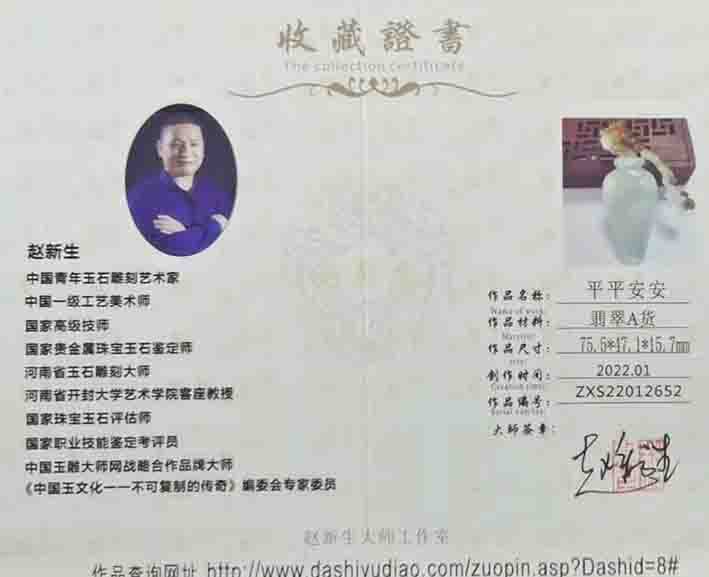 收藏證書
The collection certificate
赵新生
中国青年玉石雕刻艺术家
中国一级工艺美术师
国家高级技师
国家贵金属珠宝玉石鉴定师
河南省玉石雕刻大师
河南省开封大学艺术学院客座教授
国家珠宝玉石评估师
国家职业技能鉴定考评员
中国玉雕大师网战略合作品牌大师
《中国玉文化一一不可复制的传奇》编委会专家委员
作品名称: 平平安安
Name of work:
作品材料: 翡翠A货
Material:
作品尺寸: 75.5*47.1*15.7mm
size:
创作时间: 2022.01
Creation time:
作品编号: ZXS22012652
Serial number:
大师签章:
赵新生大师工作室
作品查询网址 http://www.dashiyudiao.com/zuopin.asp?Dashid=8#